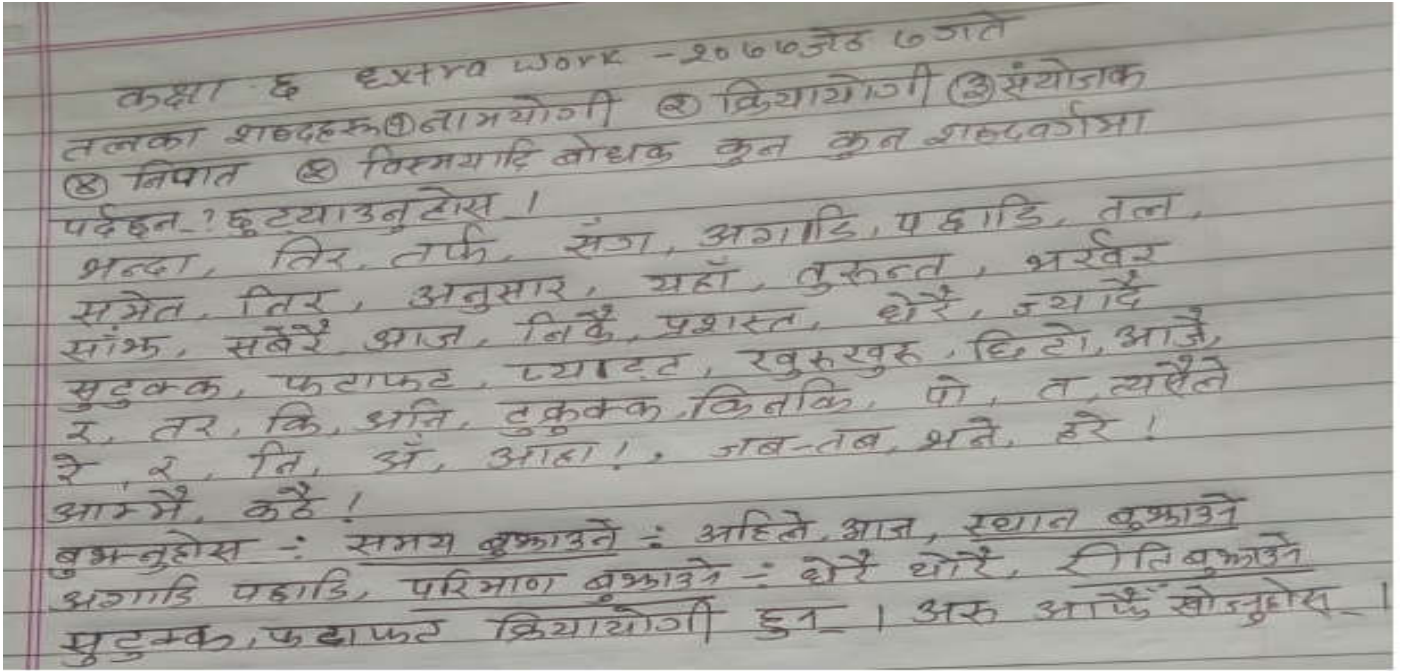 कक्षा ६ Extra work - २०७७जेठ ७ गते
तलका शब्दहरू①नामयोगी ② क्रियायोगी ③संयोजक
④ निपात ⑤ विस्मयादि बोधक कुन कुन शब्दवर्गमा
पर्दछन् ? छुट्याउनुहोस ।
भन्दा, तिर, तर्फ, संग, अगाडि, पछाडि, तल,
समेत, तिर, अनुसार, यहाँ, तुरून्त, भर्खर
सांझ, सबेरै आज, निकै, प्रशस्त, धेरै, ज्यादै
सुटुक्क, फटाफट, प्याट्ट, खुरूखुरू, छिटो, आजै,
र, तर, कि, अनि, टुक्रुक्क, किनकि, पो, त, त्यसैले
रे, र, नि, अँ, आहा!, जब-तब, भने, हरे !
आम्मै, कठै !
बुझ्नुहोस ÷ समय बुझाउने ÷ अहिले, आज, स्थान बुझाउने
अगाडि पछाडि, परिमाण बुझाउने ÷ धेरै थोरै, रीति बुझाउने
सुटुक्क, फटाफट क्रियायोगी हुन् । अरू आफैँ खोज्नुहोस् ।